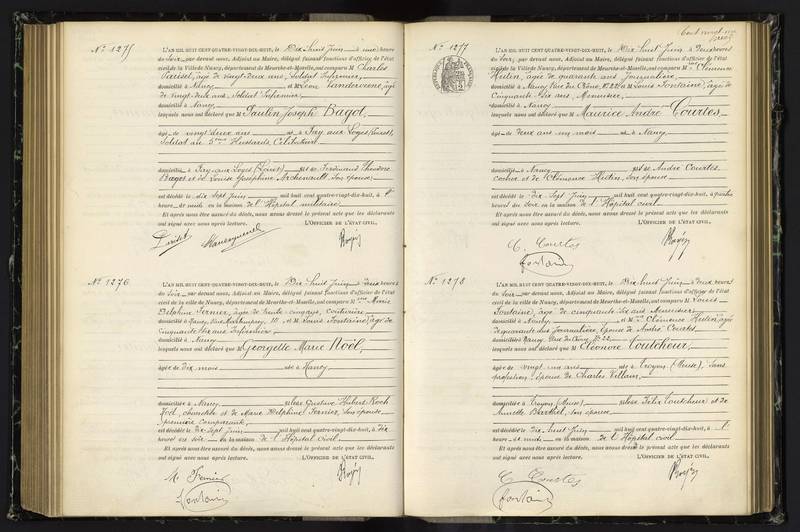 N° 1275
L'AN MIL HUIT CENT QUATRE-VINGT-DIX-HUIT, le Dix huit Juin à une heure
du soir, par devant nous, Adjoint au Maire, délégué faisant fonctions d'officier de l'état
civil de la Ville de Nancy, département de Meurthe-et-Moselle, ont comparu M Charles
âgé de vingt-deux ans, Soldat Infirmier,
domicilié à Nancy et Léon Vandervenne, âgé
de vingt-deux ans, Soldat Infirmier
domicilié à Nancy
lesquels nous ont déclaré que M Paulin Joseph Bagot,
âgé de vingt deux ans né à Fay aux Loges (Loiret),
Soldat au 5ème Hussards, Célibataire
domicilié à Fay-aux-Loges (Loiret) fils de Ferdinand Théodore
Bagot et de Louise Joséphine Archenault, son épouse
est décédé le dix sept Juin mil huit cent quatre-vingt-dix-huit, à
heure de midi en la maison de l'Hôpital militaire.
Et après nous être assuré du décès, nous avons dressé le présent acte que les déclarants
ont signé avec nous après lecture. L'OFFICIER DE L'ÉTAT CIVIL,
N° 1276
L'AN MIL HUIT CENT QUATRE-VINGT-DIX-HUIT, le Dix huit Juin à deux heures
du soir, par devant nous, Adjoint au Maire, délégué faisant fonctions d'officier de l'état
civil de la ville de Nancy, département de Meurthe-et-Moselle, ont comparu Mme Marie
Delphine âgée de trente cinq ans, Couturière
domiciliée à Nancy, 111 et M Louis Fontaine, âgé de
Cinquante six ans Infirmier
domicilié à Nancy
lesquels nous ont déclaré que M Georgette Marie Noël,
âgée de Dix mois née à Nancy
domiciliée à Nancy fille de Gustave Hubert Roch
Noël, et de Marie Delphine son épouse
première comparante
est décédée le Dix sept Juin mil huit cent quatre-vingt-dix-huit, à dix
heures du soir en la maison de l'Hôpital civil
Et après nous être assuré du décès, nous avons dressé le présent acte que les déclarants
ont signé avec nous après lecture. L'OFFICIER DE L'ÉTAT CIVIL,
Fontaine
N° 1277
L'AN MIL HUIT CENT QUATRE-VINGT-DIX-HUIT, le Dix huit Juin à Deux heures
du Soir, par devant nous, Adjoint au Maire, délégué faisant fonctions d'officier de l'état
civil de la Ville de Nancy, département de Meurthe-et-Moselle, ont comparu Mme Clémence
Hutin, âgée de quarante ans Journalière,
domiciliée à Nancy Rue du Chêne N° 22 et M Louis Fontaine, âgé de
Cinquante six ans, Menuisier,
domicilié à Nancy
lesquels nous ont déclaré que M Maurice André Courtes
âgé de Deux ans un mois né à Nancy
domicilié à Nancy fils de André Courtes
cocher et de Clémence Hutin, son épouse
est décédé le Dix Sept Juin mil huit cent quatre-vingt-dix-huit, à
heures du soir en la maison de l'Hôpital civil
Et après nous être assuré du décès, nous avons dressé le présent acte que les déclarants
ont signé avec nous après lecture. L'OFFICIER DE L'ÉTAT CIVIL,
C. Courtes
Fontaine
N° 1278
L'AN MIL HUIT CENT QUATRE-VINGT-DIX-HUIT, le Dix huit Juin à deux heures
du Soir par devant nous, Adjoint au Maire, délégué faisant fonctions d'officier de l'état
civil de la ville de Nancy, département de Meurthe-et-Moselle, ont comparu M Louis
Fontaine, âgé de cinquante six ans Menuisier
domicilié à Nancy et Mme Clémence Hutin, âgée
de quarante ans Journalière, épouse de André Courtes
domiciliée à Nancy Rue du Chêne N° 22
lesquels nous ont déclaré que M Eléonore Coutcheur,
âgée de vingt six ans née à Troyon (Meuse), sans
profession, épouse de Charles Villain,
domiciliée à Troyon (Meuse) fille de Félix Coutcheur et de
Annette Barthel, son épouse
est décédée le dix huit Juin mil huit cent quatre-vingt-dix-huit, à
heure de midi en la maison de l'Hôpital civil
Et après nous être assuré du décès, nous avons dressé le présent acte que les déclarants
ont signé avec nous après lecture. L'OFFICIER DE L'ÉTAT CIVIL,
C. Courtes
Fontaine